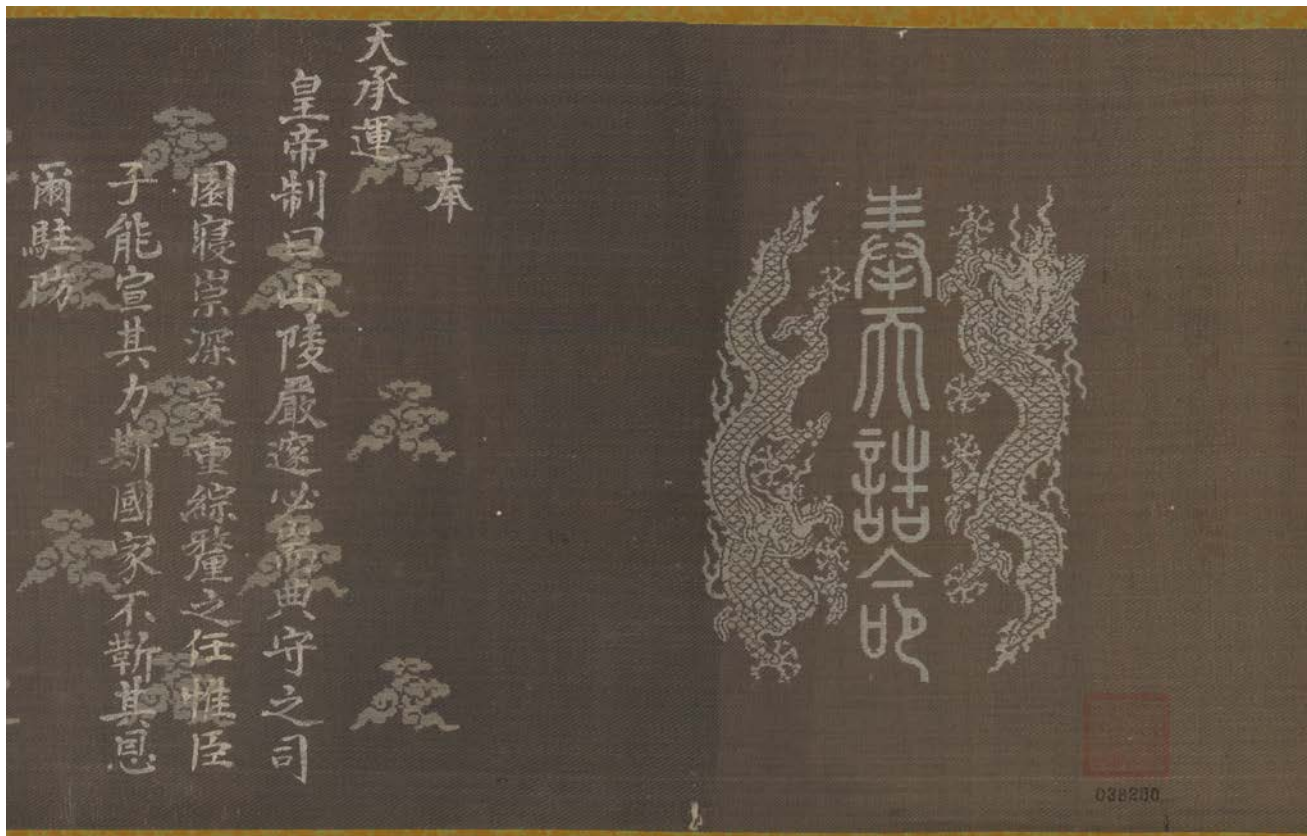 奉天誥命
奉
天承運
皇帝制曰山陵嚴邃必嵩典守之司
園寢崇深爰重綜釐之任惟臣
子能宣其力斯國家不靳其恩
爾駐防
038280